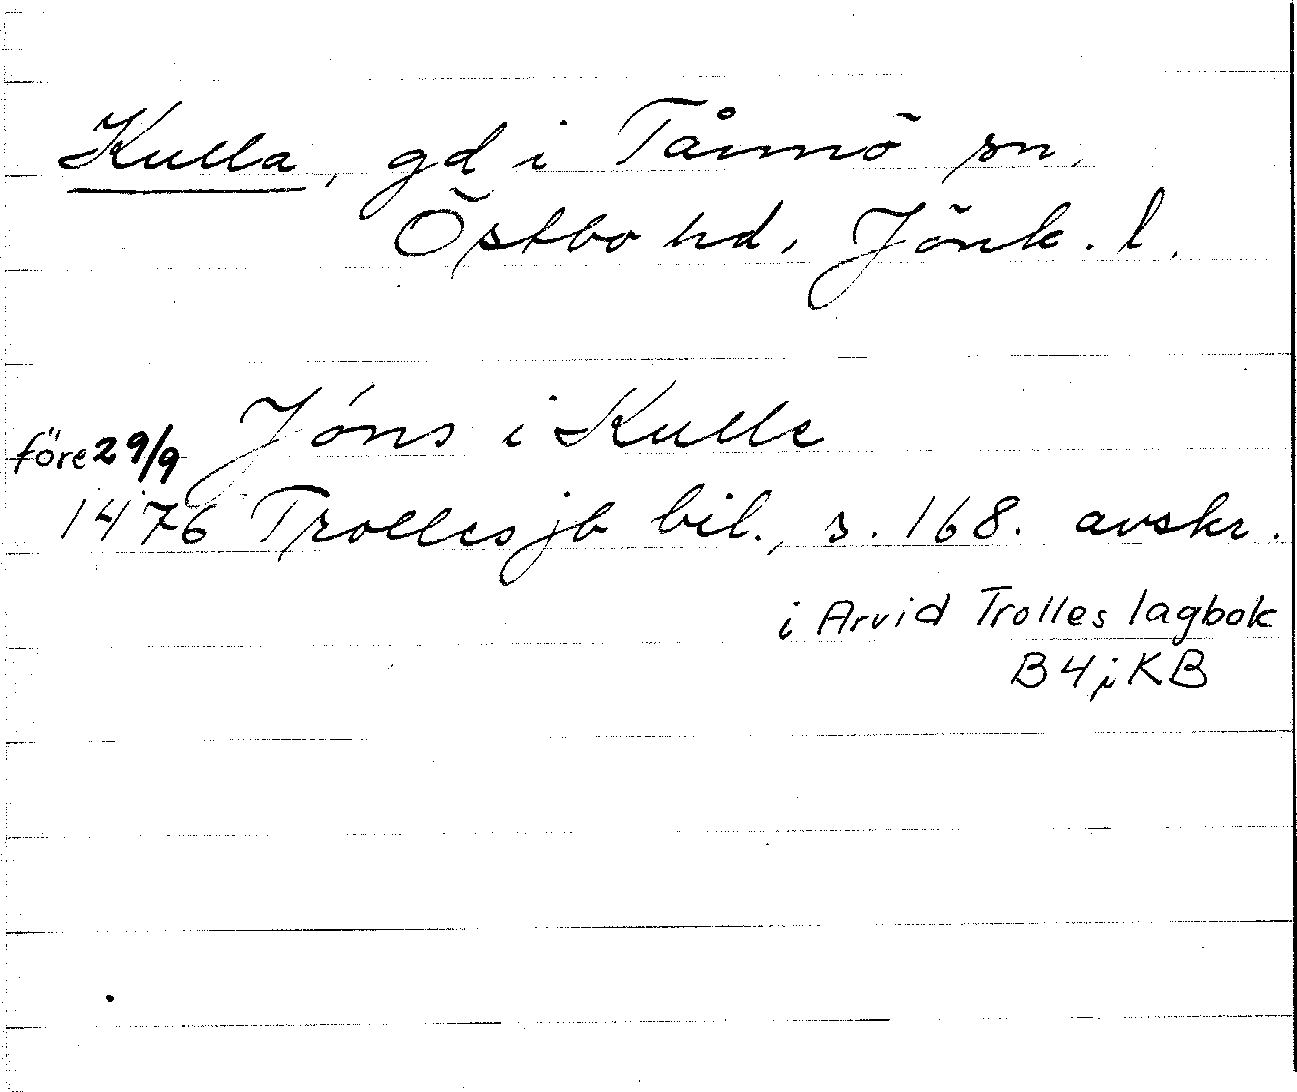 Kulla, gd i Tånnö sn,
Östbo hd, Jönk. l.
Jöns i Kulle
före 29/9
1476 Trolles jb bil., s. 168. avskr.
i Arvid Trolles lagbok
B 4 i KB